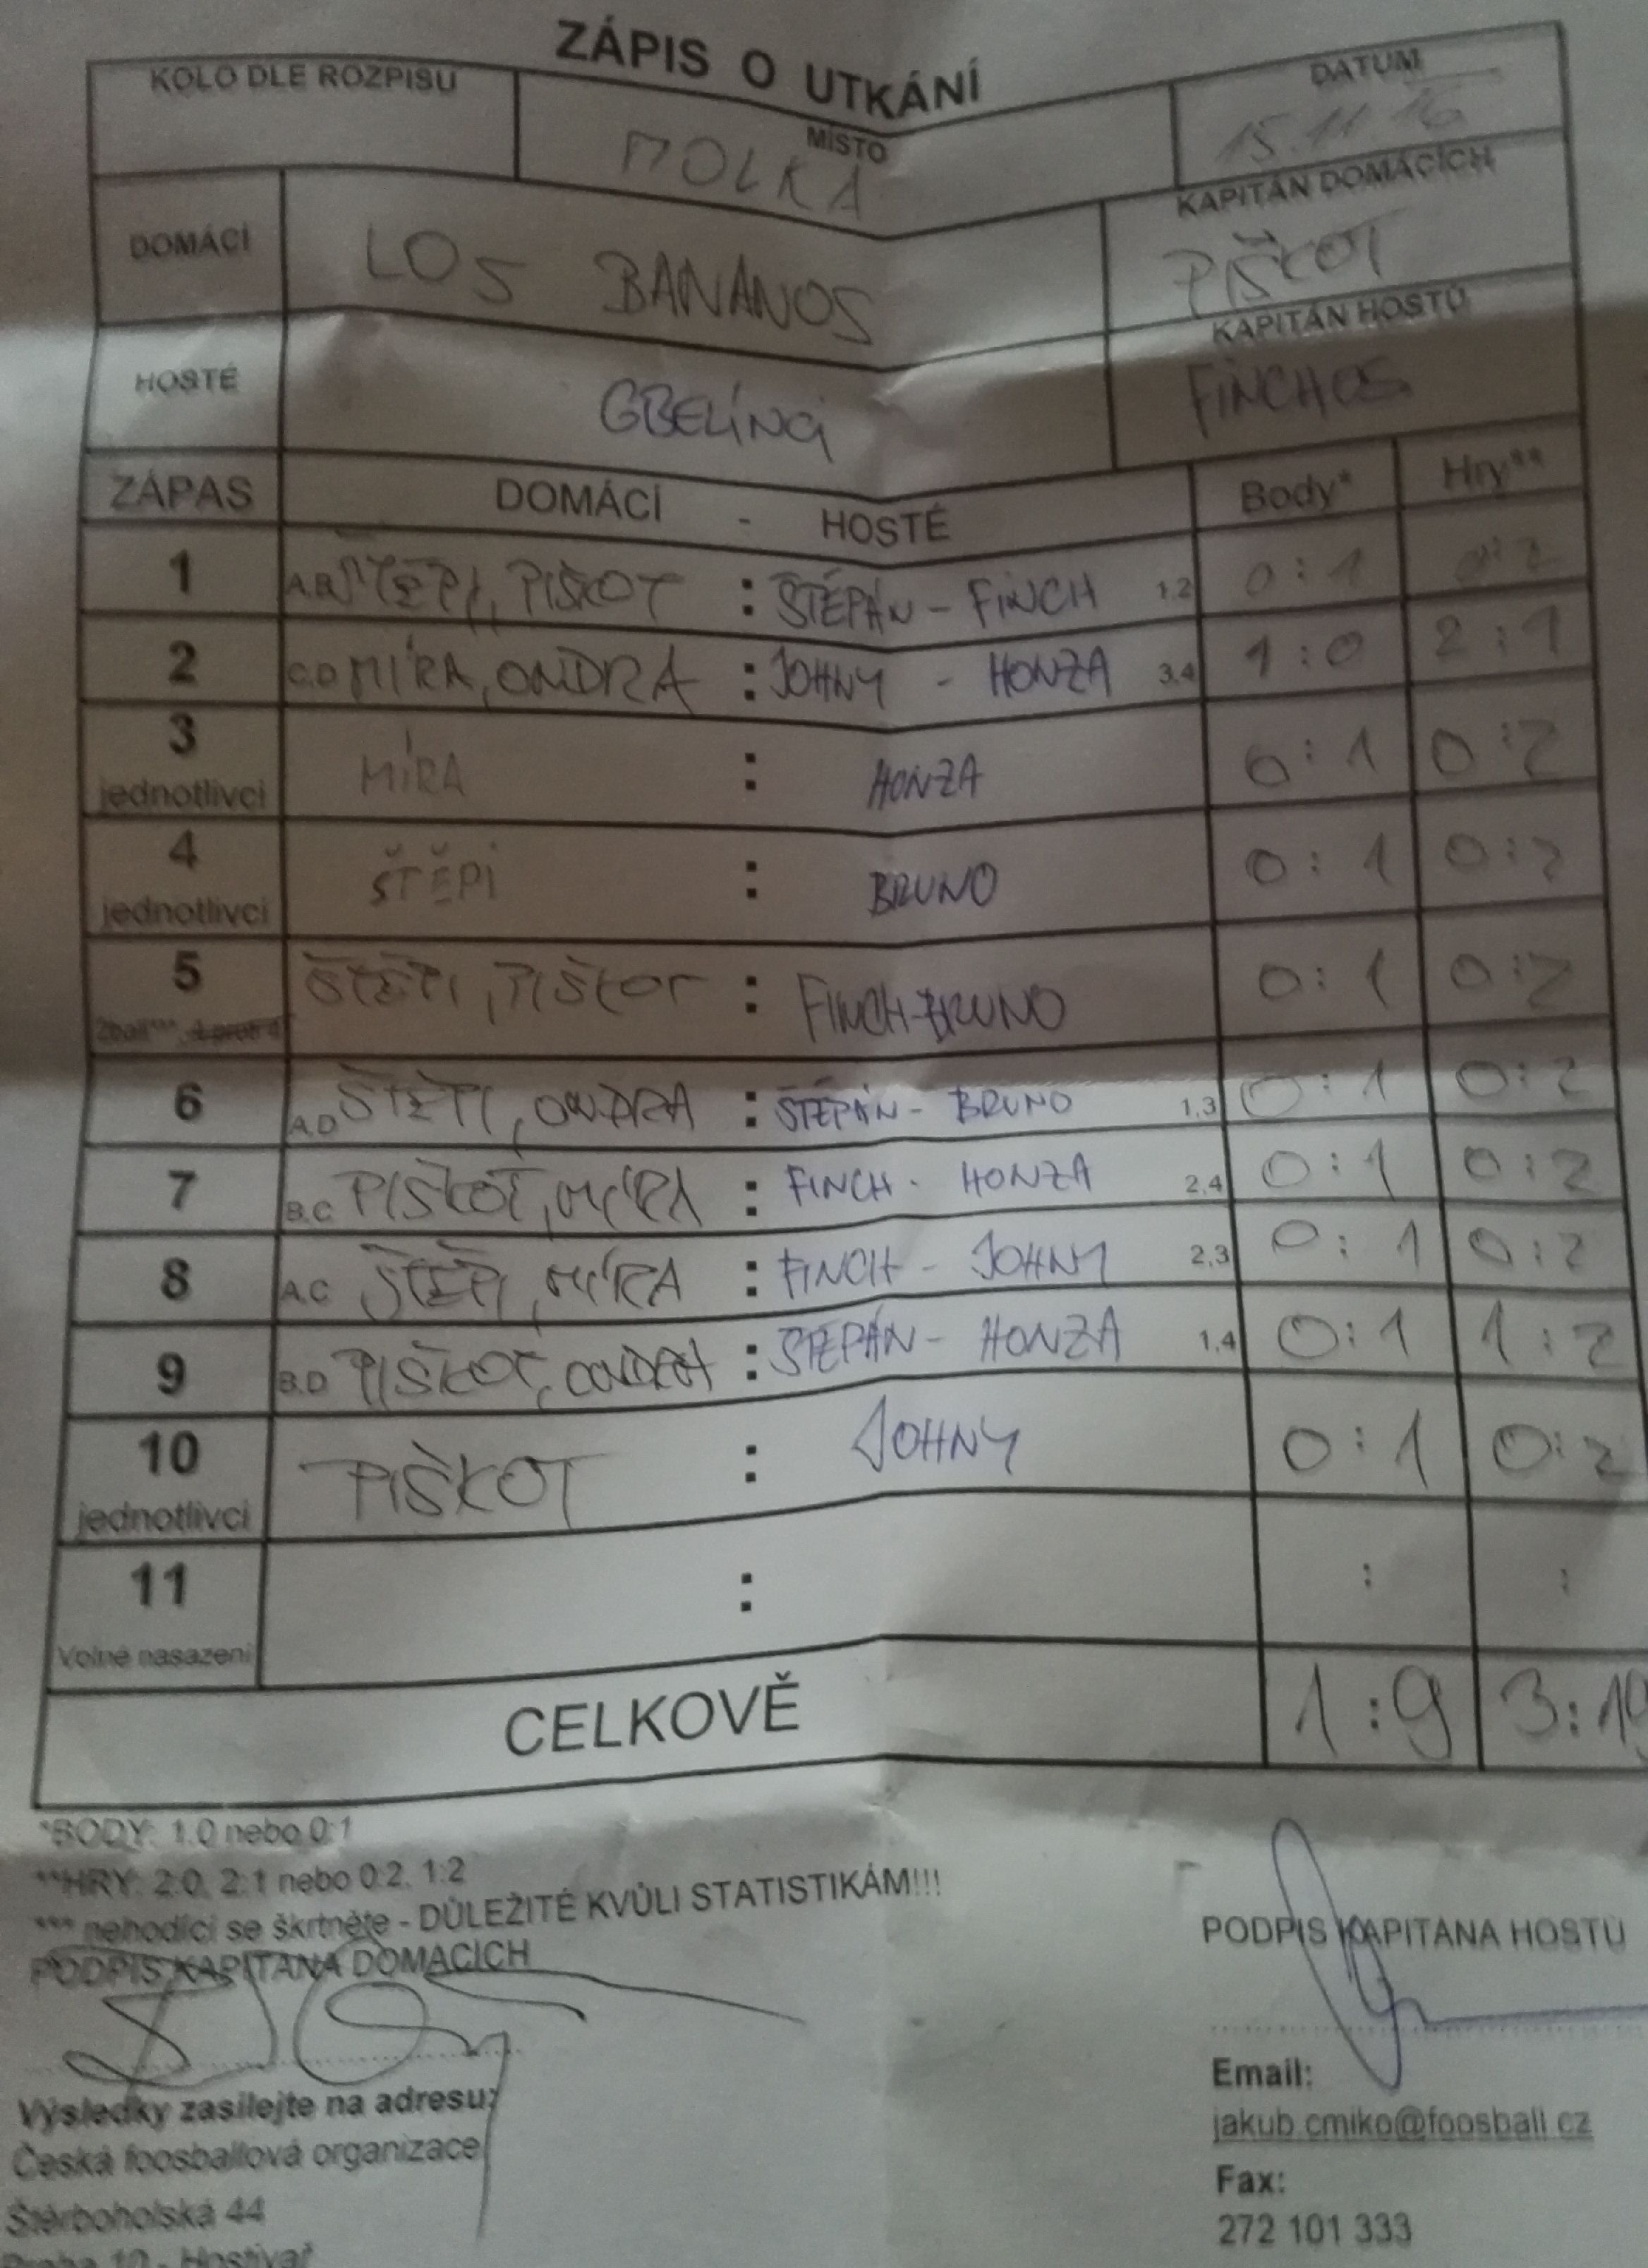 ZÁPIS O UTKÁNÍ
KOLO DLE ROZPISU MÍSTO DATUM
MOLKA 15.11.16
DOMÁCÍ LOS BANANOS KAPITÁN DOMÁCÍCH
PIŠKOT
HOSTÉ GBELÍNCI KAPITÁN HOSTŮ
FINCHOS
ZÁPAS DOMÁCÍ - HOSTÉ Body* Hry**
1 A.B ŠTĚPI, PIŠKOT : ŠTĚPÁN - FINCH 1,2 0:1 0:2
2 C.D MÍRA, ONDRA : JOHNY - HONZA 3,4 1:0 2:1
3 MÍRA : HONZA 0:1 0:2
jednotlivci
4 ŠTĚPI : BRUNO 0:1 0:2
jednotlivci
5 ŠTĚPI, PIŠKOT : FINCH-BRUNO 0:1 0:2
2ball***, 4 proti 4
6 A.D ŠTĚPI, ONDRA : ŠTĚPÁN - BRUNO 1,3 0:1 0:2
7 B.C PIŠKOT, MÍRA : FINCH - HONZA 2,4 0:1 0:2
8 A.C ŠTĚPI, MÍRA : FINCH - JOHNY 2,3 0:1 0:2
9 B.D PIŠKOT, ONDRA : ŠTĚPÁN - HONZA 1,4 0:1 1:2
10 PIŠKOT : JOHNY 0:1 0:2
jednotlivci
11 : : :
Volné nasazení
CELKOVĚ 1:9 3:19
*BODY: 1:0 nebo 0:1
**HRY: 2:0, 2:1 nebo 0:2, 1:2
*** nehodící se škrtněte - DŮLEŽITÉ KVŮLI STATISTIKÁM!!!
PODPIS KAPITÁNA DOMÁCÍCH
PODPIS KAPITÁNA HOSTŮ
Výsledky zasílejte na adresu:
Česká foosballová organizace
Štěrboholská 44
Praha 10 - Hostivař
Email:
jakub.cmiko@foosball.cz
Fax:
272 101 333